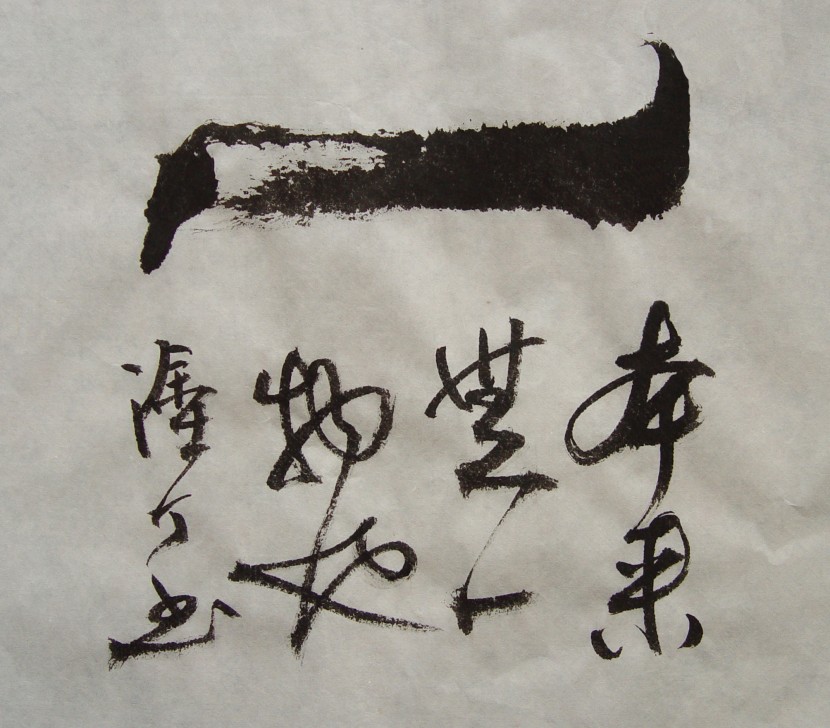 一
本来
無一
物也